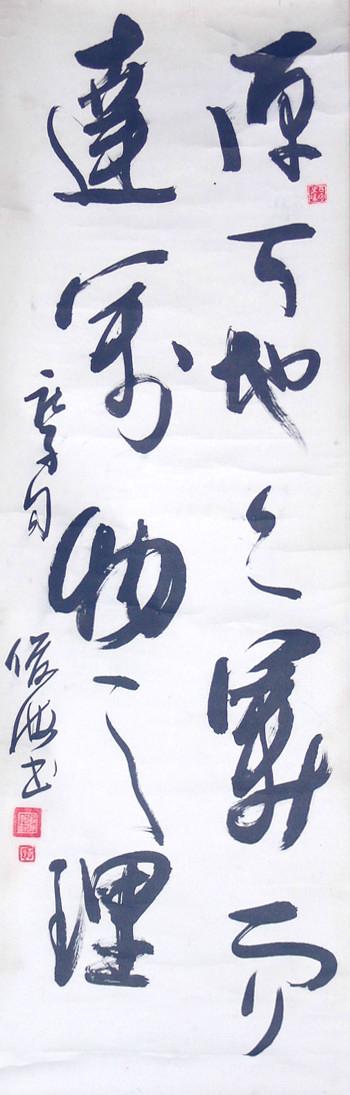 原天地之美而
達萬物之理
莊子句
俊海书